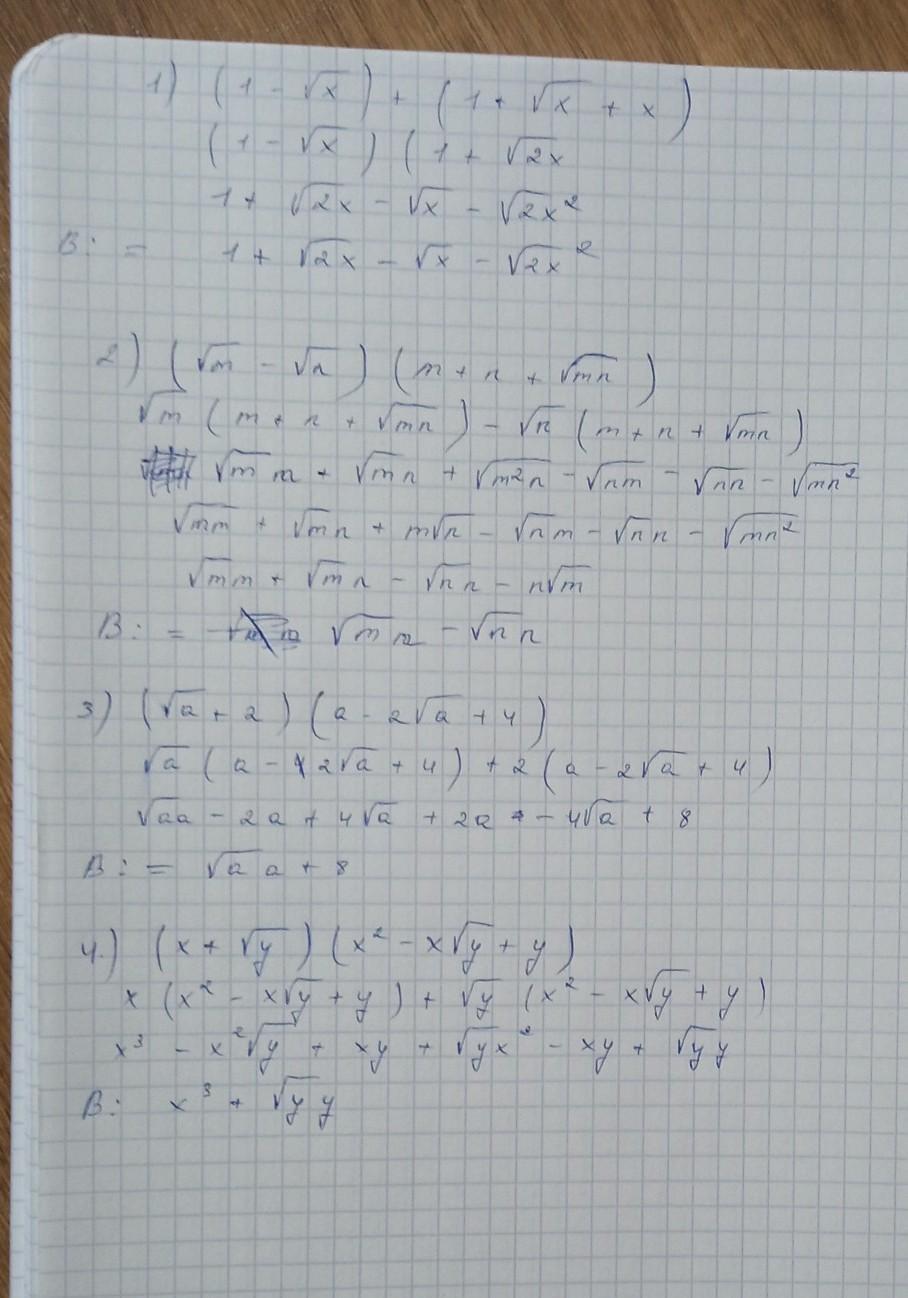 1) (1 - √x) + (1 + √x + x)
(1 - √x) (1 + √2x
1 + √2x - √x - √2x²
B: = 1 + √2x - √x - √2x²
2) (√m - √n) (m + n + √mn)
√m (m + n + √mn) - √n (m + n + √mn)
√m m + √m n + √m²n - √nm - √nn - √mn²
√mm + √m n + m√n - √n m - √n n - √mn²
√mm + √m n - √n n - n√m
B: = √m m - √n n
3) (√a + 2) (a - 2√a + 4)
√a (a - 2√a + 4) + 2 (a - 2√a + 4)
√aa - 2a + 4√a + 2a - 4√a + 8
B: = √a a + 8
4.) (x + √y) (x² - x√y + y)
x (x² - x√y + y) + √y (x² - x√y + y)
x³ - x²√y + xy + √yx² - xy + √y y
B: x³ + √y y